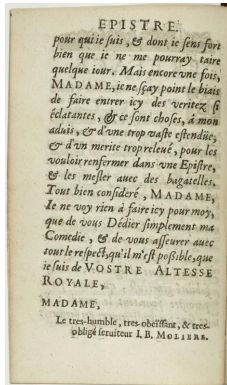 EPISTRE.
pour qui ie suis, & dont ie sens fort
bien que ie ne me pourray taire
quelque iour. Mais encore vne fois,
MADAME, ie ne sçay point le biais
de faire entrer icy des veritez si
éclatantes, & ce sont choses, à mon
aduis, & d'vne trop vaste estenduë,
& d'vn merite trop releué, pour les
vouloir renfermer dans vne Epistre,
& les mesler auec des bagatelles.
Tout bien consideré, MADAME,
Ie ne voy rien à faire icy pour moy,
que de vous Dédier simplement ma
Comedie, & de vous asseurer auec
tout le respect, qu'il m'est possible, que
ie suis de VOSTRE ALTESSE
ROYALE,
MADAME,
Le tres-humble, tres-obeïssant, & tres-
obligé seruiteur I. B. MOLIERE.